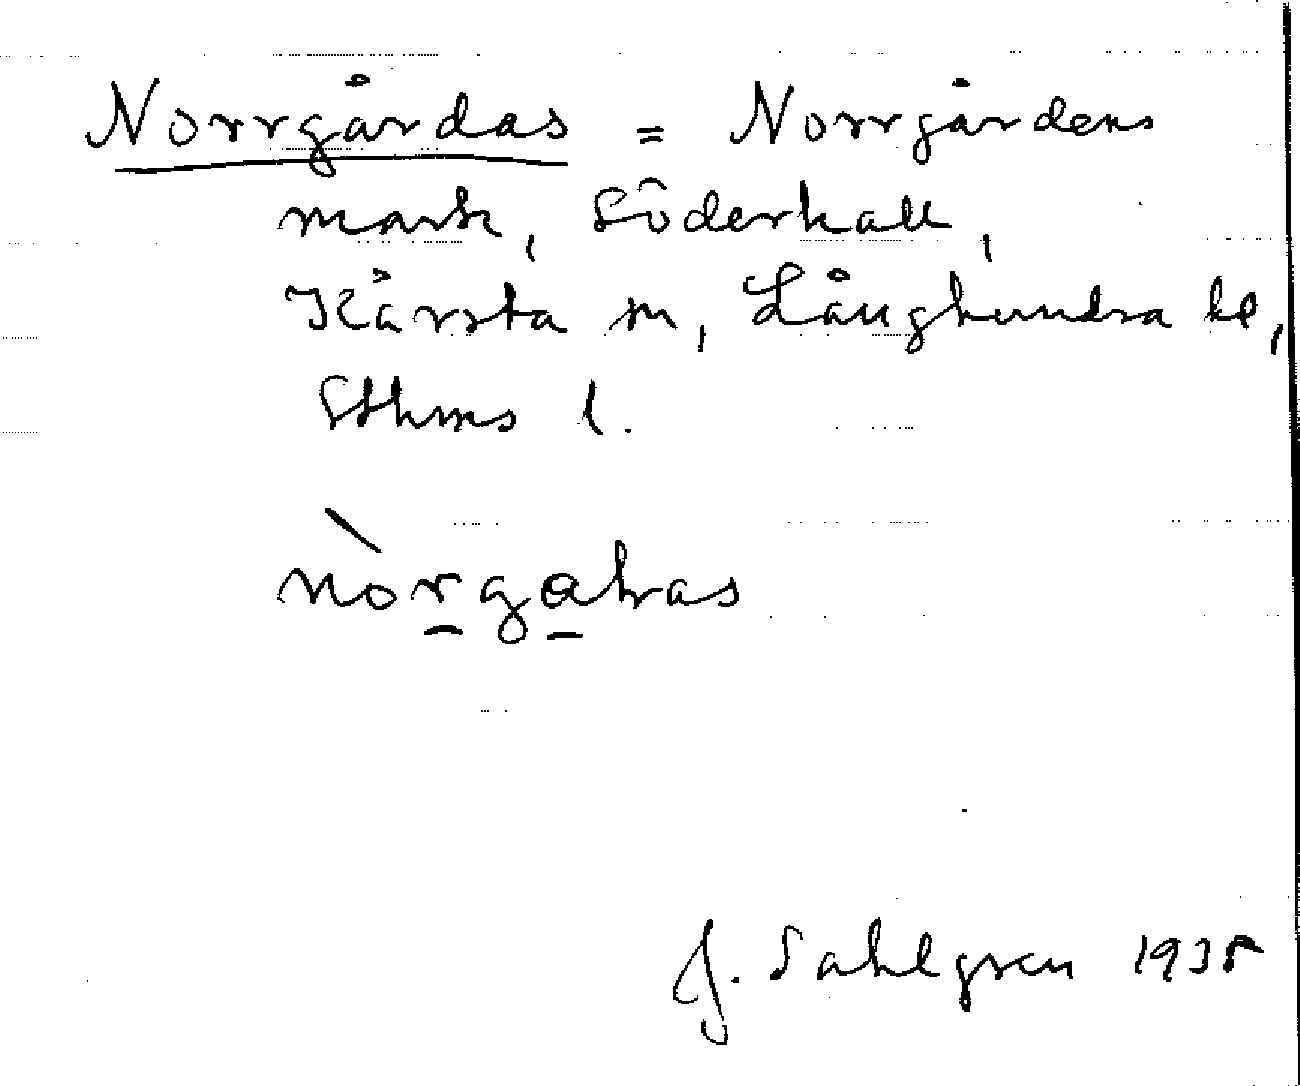 Norrgårdas = Norrgårdens
mark, Söderhall,
Kårsta sn, Långhundra hd,
Sthms l.
nòrgɑhas
J. Sahlgren 1935